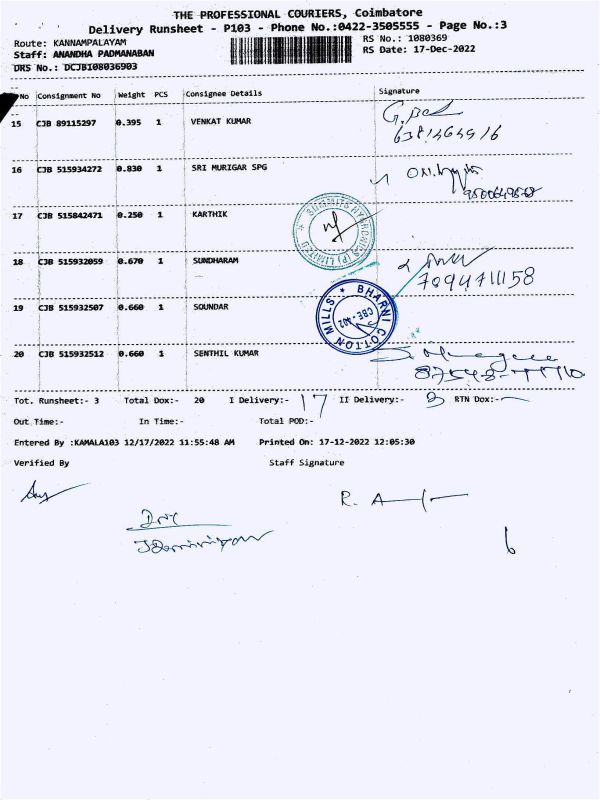 THE PROFESSIONAL COURIERS, Coimbatore
Delivery Runsheet - P103 - Phone No.:0422-3505555 - Page No.:3
Route: KANNAMPALAYAM
RS No.: 1080369
Staff: ANANDHA PADMANABAN
RS Date: 17-Dec-2022
DRS No.: DCJB108036903
No Consignment No Weight PCS Consignee Details Signature
15 CJB 89115297 0.395 1 VENKAT KUMAR
16 CJB 515934272 0.830 1 SRI MURIGAR SPG
17 CJB 515842471 0.250 1 KARTHIK
18 CJB 515932059 0.670 1 SUNDHARAM
7094711158
19 CJB 515932507 0.660 1 SOUNDAR
BHARNI COTTON MILLS
CBE - 402
20 CJB 515932512 0.660 1 SENTHIL KUMAR
Tot. Runsheet:- 3 Total Dox:- 20 I Delivery:- 17 II Delivery:- 3 RTN Dox:-
Out Time:- In Time:- Total POD:-
Entered By :KAMALA103 12/17/2022 11:55:48 AM Printed On: 17-12-2022 12:05:30
Verified By Staff Signature